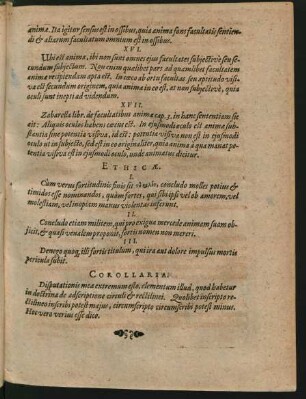 anima. Ita igitur sensus est in ossibus, quia anima suas facultatis sentiendi & aliarum facultatum omnium est in ossibus.
XVI.
Ubi est anima, ibi non sunt omnes ejus facultates subjectivè seu secundum subjectum. Non enim quaelibet pars ad quamlibet facultatem
animae recipiendam apta est. In caeco ab ortu facultas seu aptitudo visiva est secundum originem, quia anima in eo est, at non subjectivè, quia
oculi sunt inepti ad videndum.
XVII.
Zabarella libr. de facultatibus animae cap. 3. in hanc sententiam
ait: Aliquis oculos habens caecus est. In ejusmodi oculis est animae substantia sine potentia visiva, id est: potentia visiva non est in ejusmodi
oculis ut in subjecto, sed est in eo originaliter, quia anima à qua manat potentia visiva est in ejusmodi oculis, unde animatus dicitur.
ETHICAE.
I.
Cum verus fortitudinis finis sit concludo molles potius &
timidos esse nominandos, quàm fortes, qui sibi ipsi vel ob amorem, vel
molestiam, vel inopiam manus violentas inferunt.
II.
Concludo etiam militem, qui pro exiguo mercede animam suam objicit, & quasi venalem proponit, fortis nomen non mereri.
III.
Denego quoq; illi fortis titulum, qui ira aut dolore impulsus mortis
pericula subit.
COROLLARIA.
Disputationis meae extremum esto, elementum illud, quod habetur
in doctrina de adscriptione circuli & rectilinei. Quolibet inscripto rectilineo inscribi potest majus, circumscripto circumscribi potest minus.
Hoc vero verius esse dico.